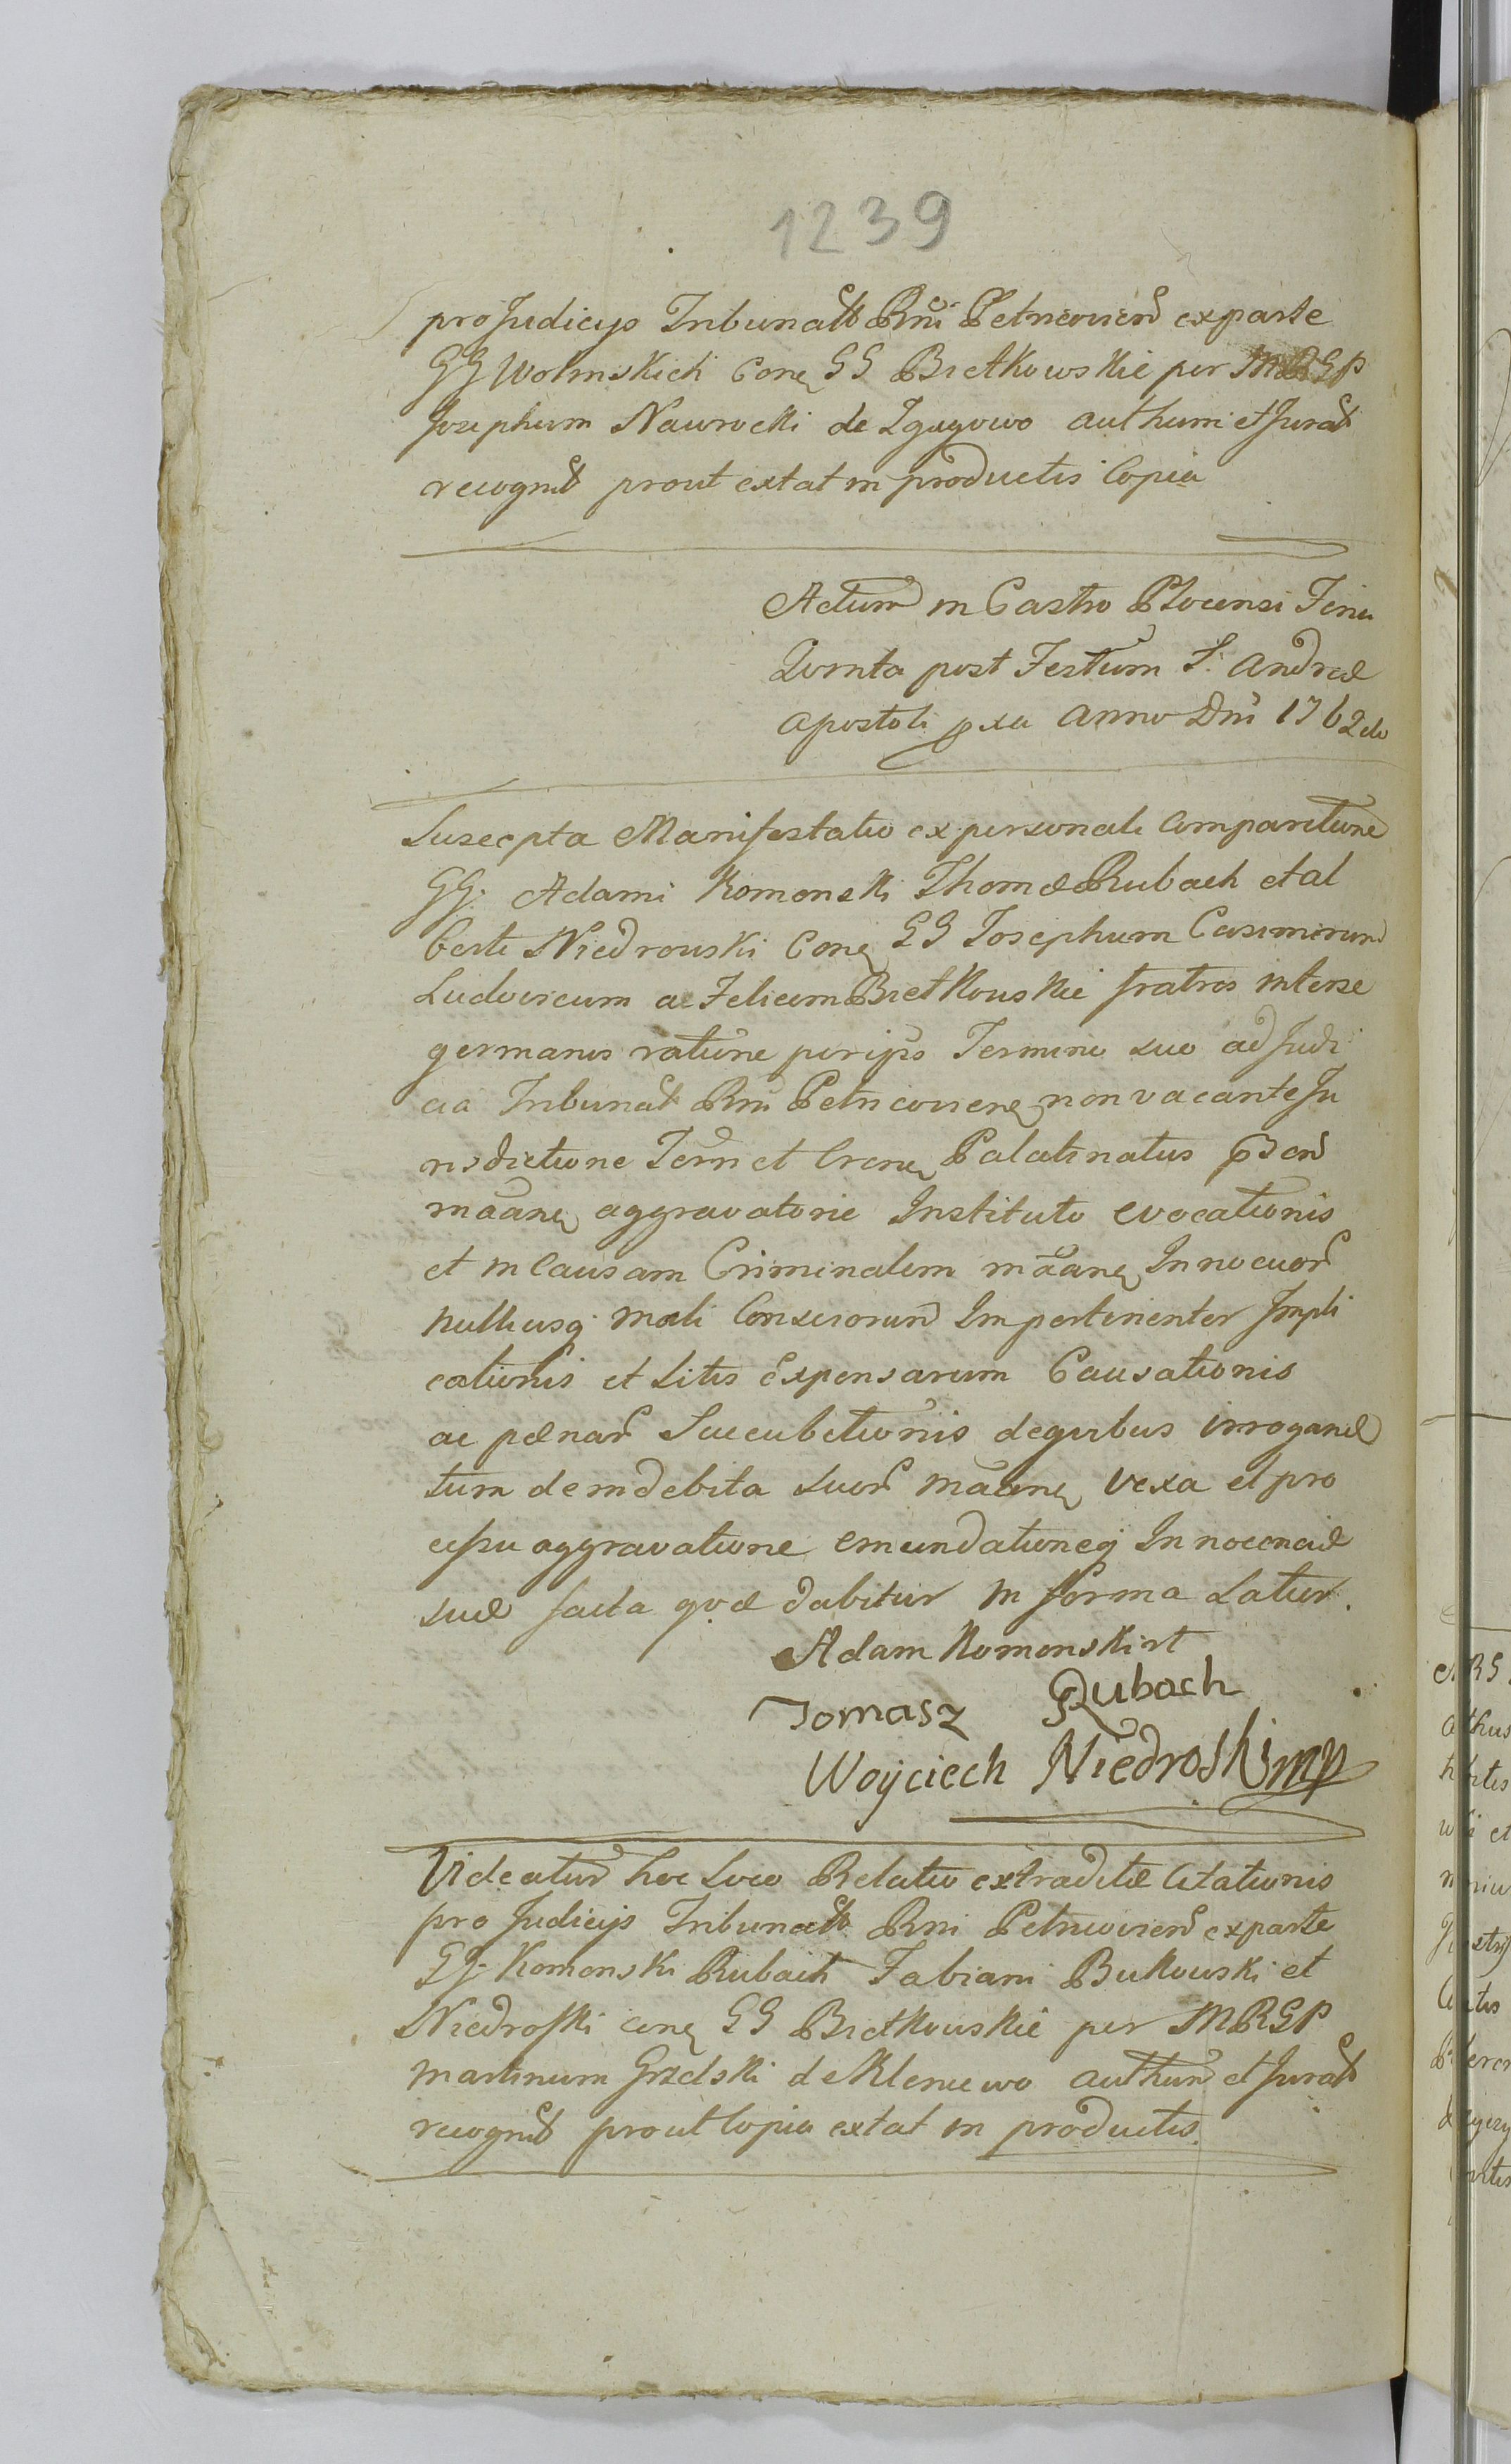 1239
pro Judicijs Tribunalib Rni Petricovien ex parte
GG Wolinskich Conq GG Bietkowskie per MRGP
Josephum Nawrocki de Zgagowo authum et Jurat
recognit prout extat in productis Copia
Actum in Castro Plocensi Feria
Quinta post Festum S. Andreæ
Apostoli pxa Anno Dni 1762do
Suscepta Manifestatio ex personali Comparitione
GG. Adami Komonski Thomæ Rubach et al
berti Niedrowski Conq GG Josephum Casimirum
Ludovicum ac Felicem Bietkowskie fratres interse
germanos ratione per ipsos Termini suo ad Judi
cia Tribunat Rni Petricovienq non vacante Ju
risdictione Terri et Crenq Palatinatus
mãanq aggravatorie Instituto evocationis
et in Causam Criminalem mãanq Innocuor
nulliusq mali Consciorum Impertinenter Impli
cationis et Litis Expensarum Causationis
ac pænar Succubitionis de quibus irrogand
tum de indebita suor mãanq vexa et pro
cessu aggravatione emundationeq Innocenciæ
suæ facta quæ dabitur in forma Latiori.
Adam Komonski
Tomasz Rubach
Woyciech Niedroski mp
Videatur hoc Loco Relatio extraditæ Citationis
pro Judicijs Tribunalib Rni Petricovien ex parte
GG. Komonski Rubach Fabiani Bukowski et
Niedroski conq GG Bietkowskie per MRGP
Martinum Grzelski de Kleniewo authum et Jurat
recognit prout Copia extat in productis.